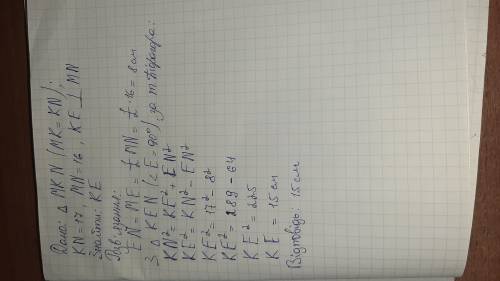 Дано: Δ MKN (MK = KN);
KN = 17, MN = 16, KE ⊥ MN
Знайти: KE
Розв'язання:
EN = ME = 1/2 MN = 1/2 · 16 = 8 см
З Δ KEN (∠E = 90°), за т. Піфагора:
KN² = KE² + EN²
KE² = KN² - EN²
KE² = 17² - 8²
KE² = 289 - 64
KE² = 225
KE = 15 см
Відповідь: 15 см